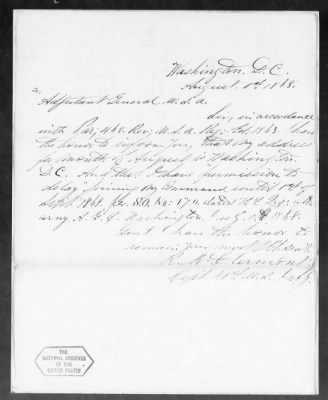 Washington, D.C.
August 1st 1868.
To,
Adjutant General U.S.A.
Sir, in accordance
with Par. 468. Rev. U.S.A. Reg. Ed. 1863. I have
the honor to inform you, that my address
for month of August is Washington,
D.C. And that I have permission to
delay joining my Command until 1st of
Sept. 1868. S.O. No. 179. dated H.Q. of the
army A.G.O. Washington,
1868.
Gent. I have the honor to
remain your most Obdt.
Capt. 41st U.S. Inf.
THE
NATIONAL ARCHIVES
OF THE
UNITED STATES